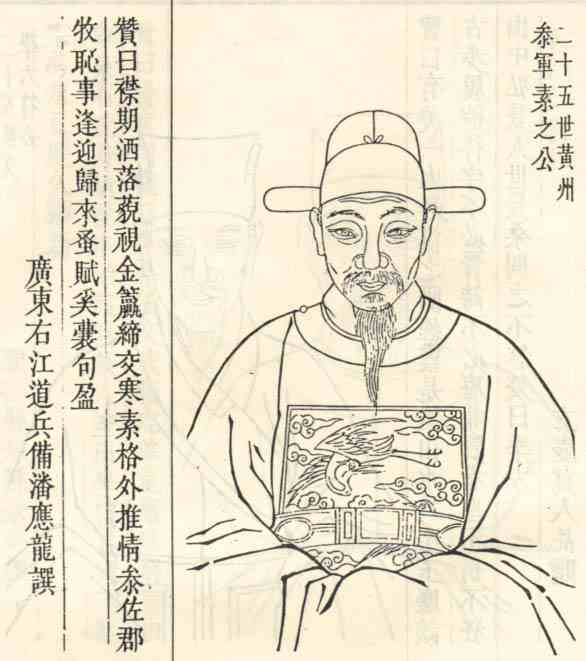 二十五世黄州
叅軍素之公
贊曰襟期洒落藐視金籯締交寒素格外推情叅佐郡
牧恥事逢迎歸來蚤賦奚囊句盈
廣東右江道兵備潘應龍譔